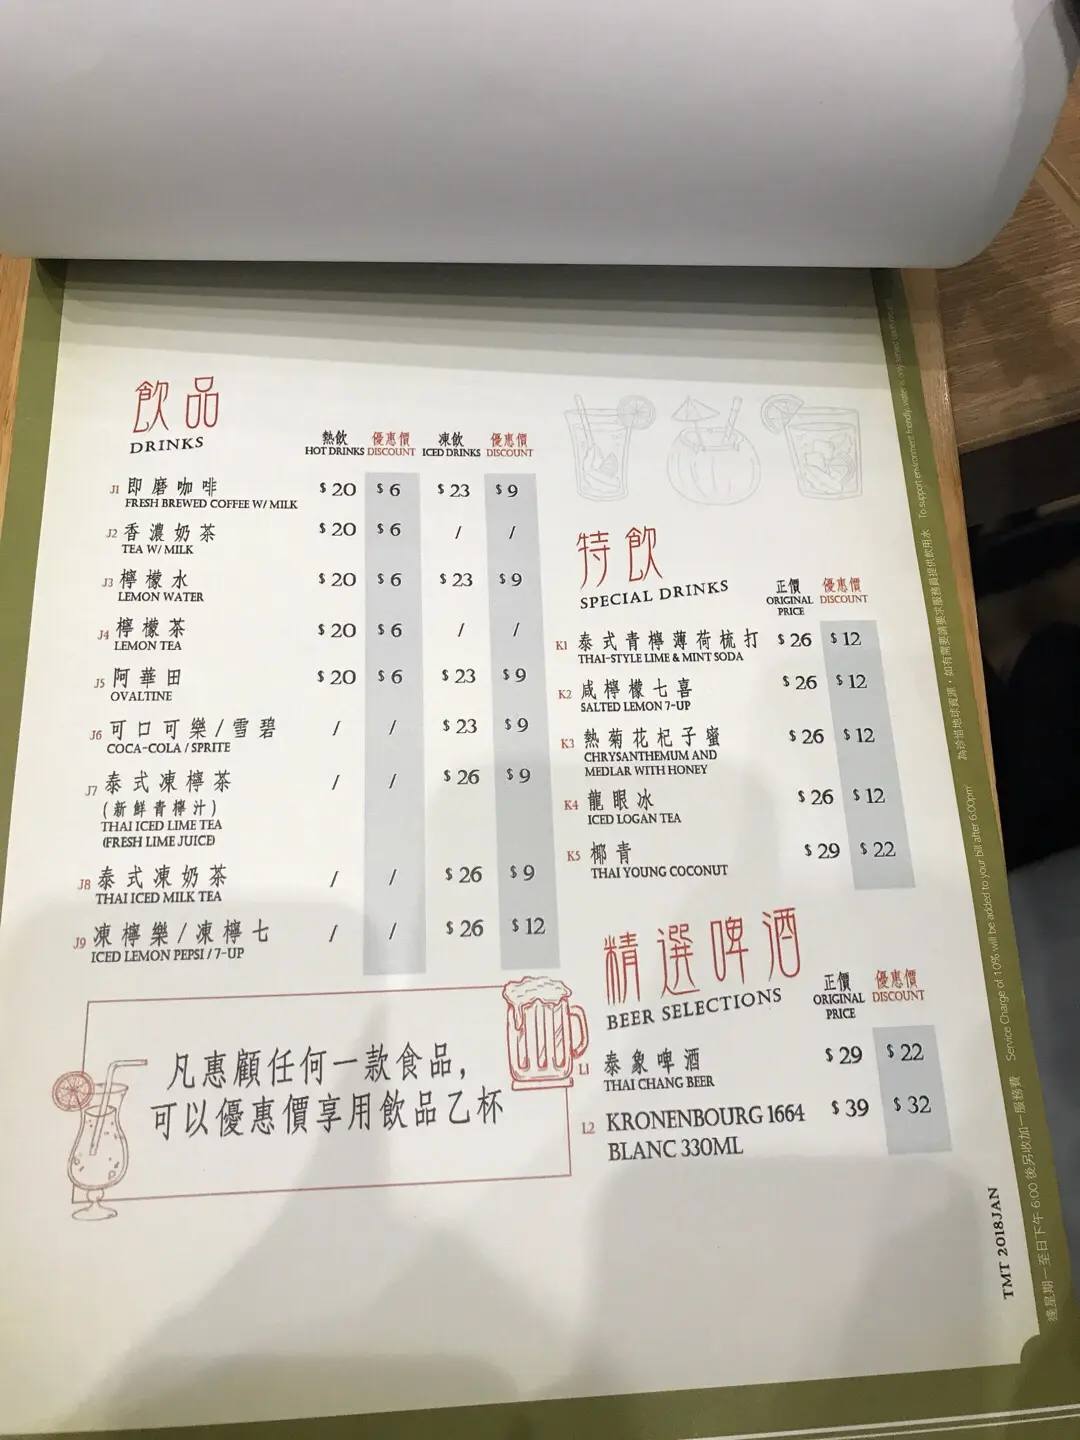 飲品
DRINKS
熱飲 優惠價 凍飲 優惠價
HOT DRINKS DISCOUNT ICED DRINKS DISCOUNT
J1 即磨咖啡 $20 $6 $23 $9
FRESH BREWED COFFEE W/ MILK
J2 香濃奶茶 $20 $6 / /
TEA W/ MILK
J3 檸檬水 $20 $6 $23 $9
LEMON WATER
J4 檸檬茶 $20 $6 / /
LEMON TEA
J5 阿華田 $20 $6 $23 $9
OVALTINE
J6 可口可樂/雪碧 / / $23 $9
COCA-COLA / SPRITE
J7 泰式凍檸茶 / / $26 $9
(新鮮青檸汁)
THAI ICED LIME TEA
(FRESH LIME JUICE)
J8 泰式凍奶茶 / / $26 $9
THAI ICED MILK TEA
J9 凍檸樂/凍檸七 / / $26 $12
ICED LEMON PEPSI / 7-UP
凡惠顧任何一款食品，
可以優惠價享用飲品乙杯
特飲
SPECIAL DRINKS
正價 優惠價
ORIGINAL DISCOUNT
PRICE
K1 泰式青檸薄荷梳打 $26 $12
THAI-STYLE LIME & MINT SODA
K2 咸檸檬七喜 $26 $12
SALTED LEMON 7-UP
K3 熱菊花杞子蜜 $26 $12
CHRYSANTHEMUM AND
MEDLAR WITH HONEY
K4 龍眼冰 $26 $12
ICED LOGAN TEA
K5 椰青 $29 $22
THAI YOUNG COCONUT
精選啤酒
BEER SELECTIONS
正價 優惠價
ORIGINAL DISCOUNT
PRICE
L1 泰象啤酒 $29 $22
THAI CHANG BEER
L2 KRONENBOURG 1664 $39 $32
BLANC 330ML
TMT 2018JAN
逢星期一至日下午 6:00 後另收加一服務費 Service Charge of 10% will be added to your bill after 6:00pm
為珍惜地球資源，如有需要請要求服務員提供飲用水 To support environment friendly, water is only served upon